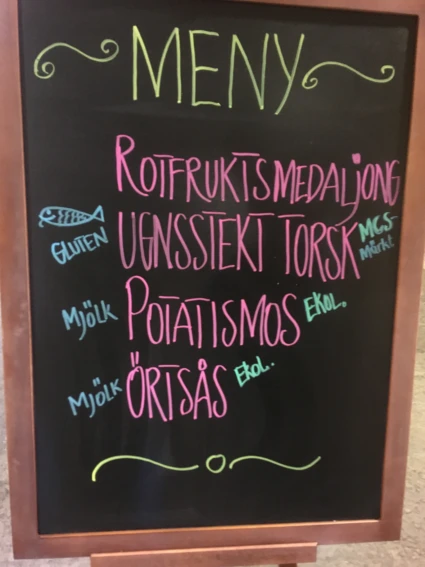 MENY
ROTFRUKTSMEDALJONG
GLUTEN UGNSSTEKT TORSK MCS-Märkt.
Mjölk POTATISMOS EKOL.
Mjölk ÖRTSÅS EKOL.